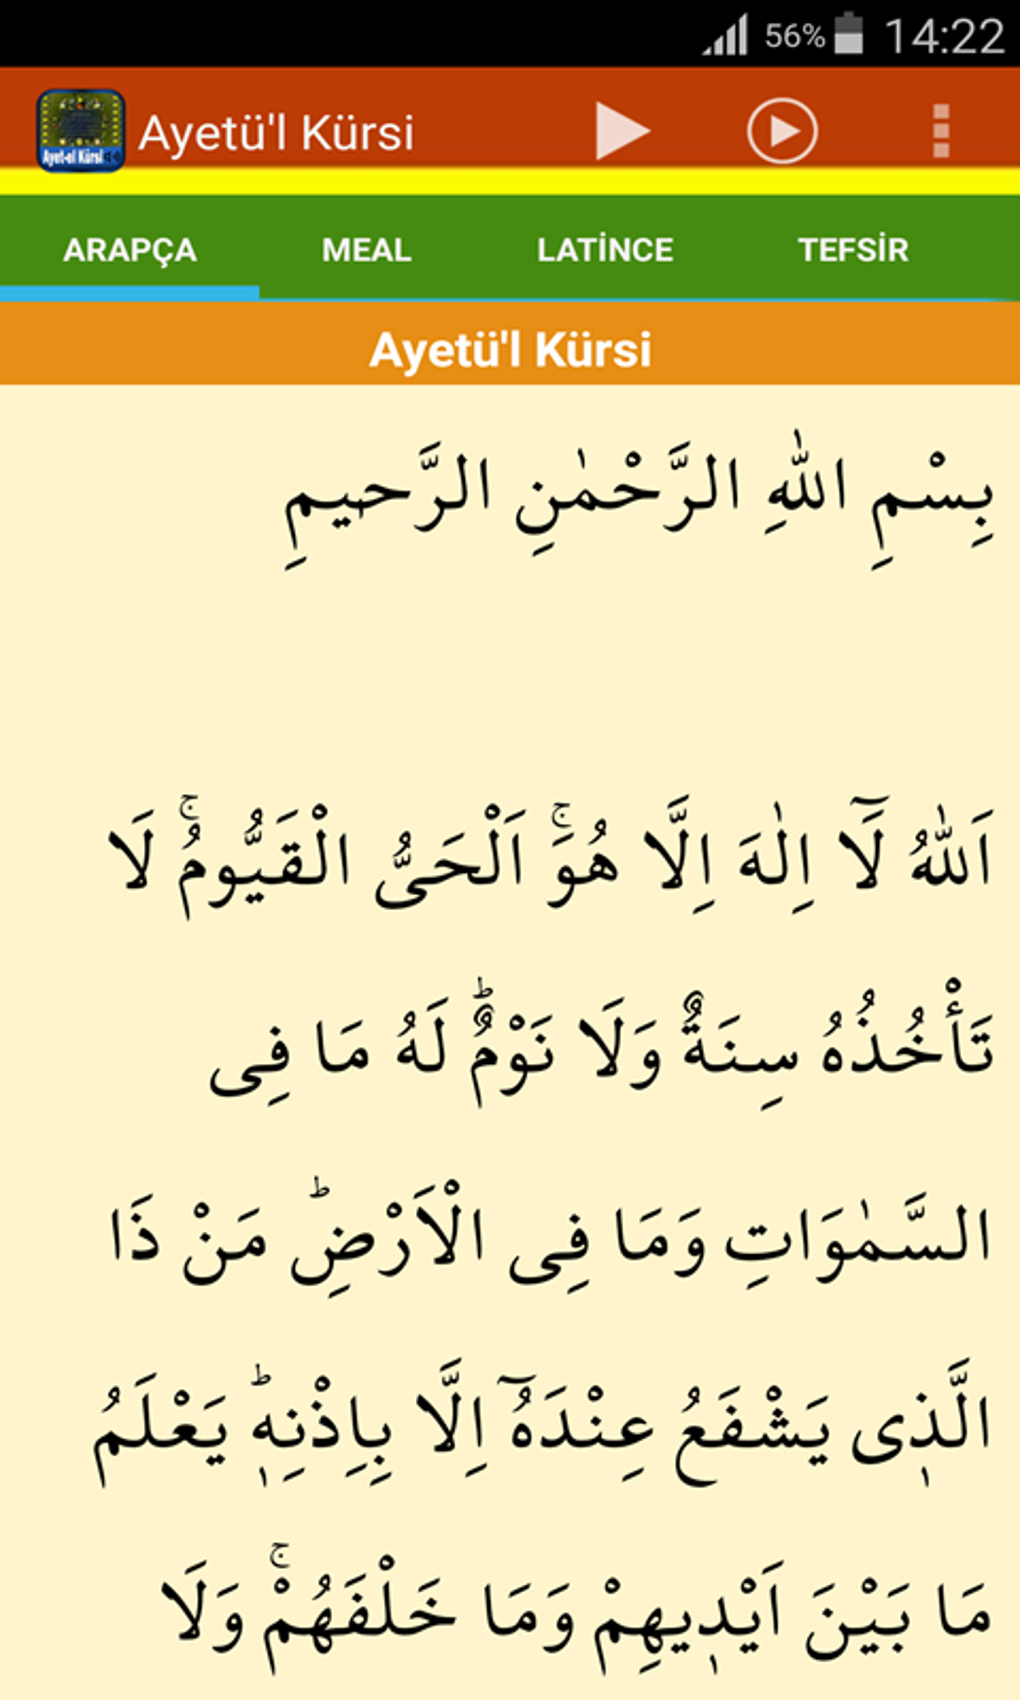 56% 14:22
Ayet-el Kürsi
Ayetü'l Kürsi
ARAPÇA MEAL LATİNCE TEFSİR
Ayetü'l Kürsi
بِسْمِ اللّٰهِ الرَّحْمٰنِ الرَّحيمِ
اَللّٰهُ لَٓا اِلٰهَ اِلَّا هُوَۚ اَلْحَىُّ الْقَيُّومُۚ لَا
تَأْخُذُهُ سِنَةٌ وَلَا نَوْمٌؕ لَهُ مَا فِى
السَّمٰوَاتِ وَمَا فِى الْاَرْضِؕ مَنْ ذَا
الَّذٖى يَشْفَعُ عِنْدَهُٓ اِلَّا بِاِذْنِهٖؕ يَعْلَمُ
مَا بَيْنَ اَيْدٖيهِمْ وَمَا خَلْفَهُمْۚ وَلَا